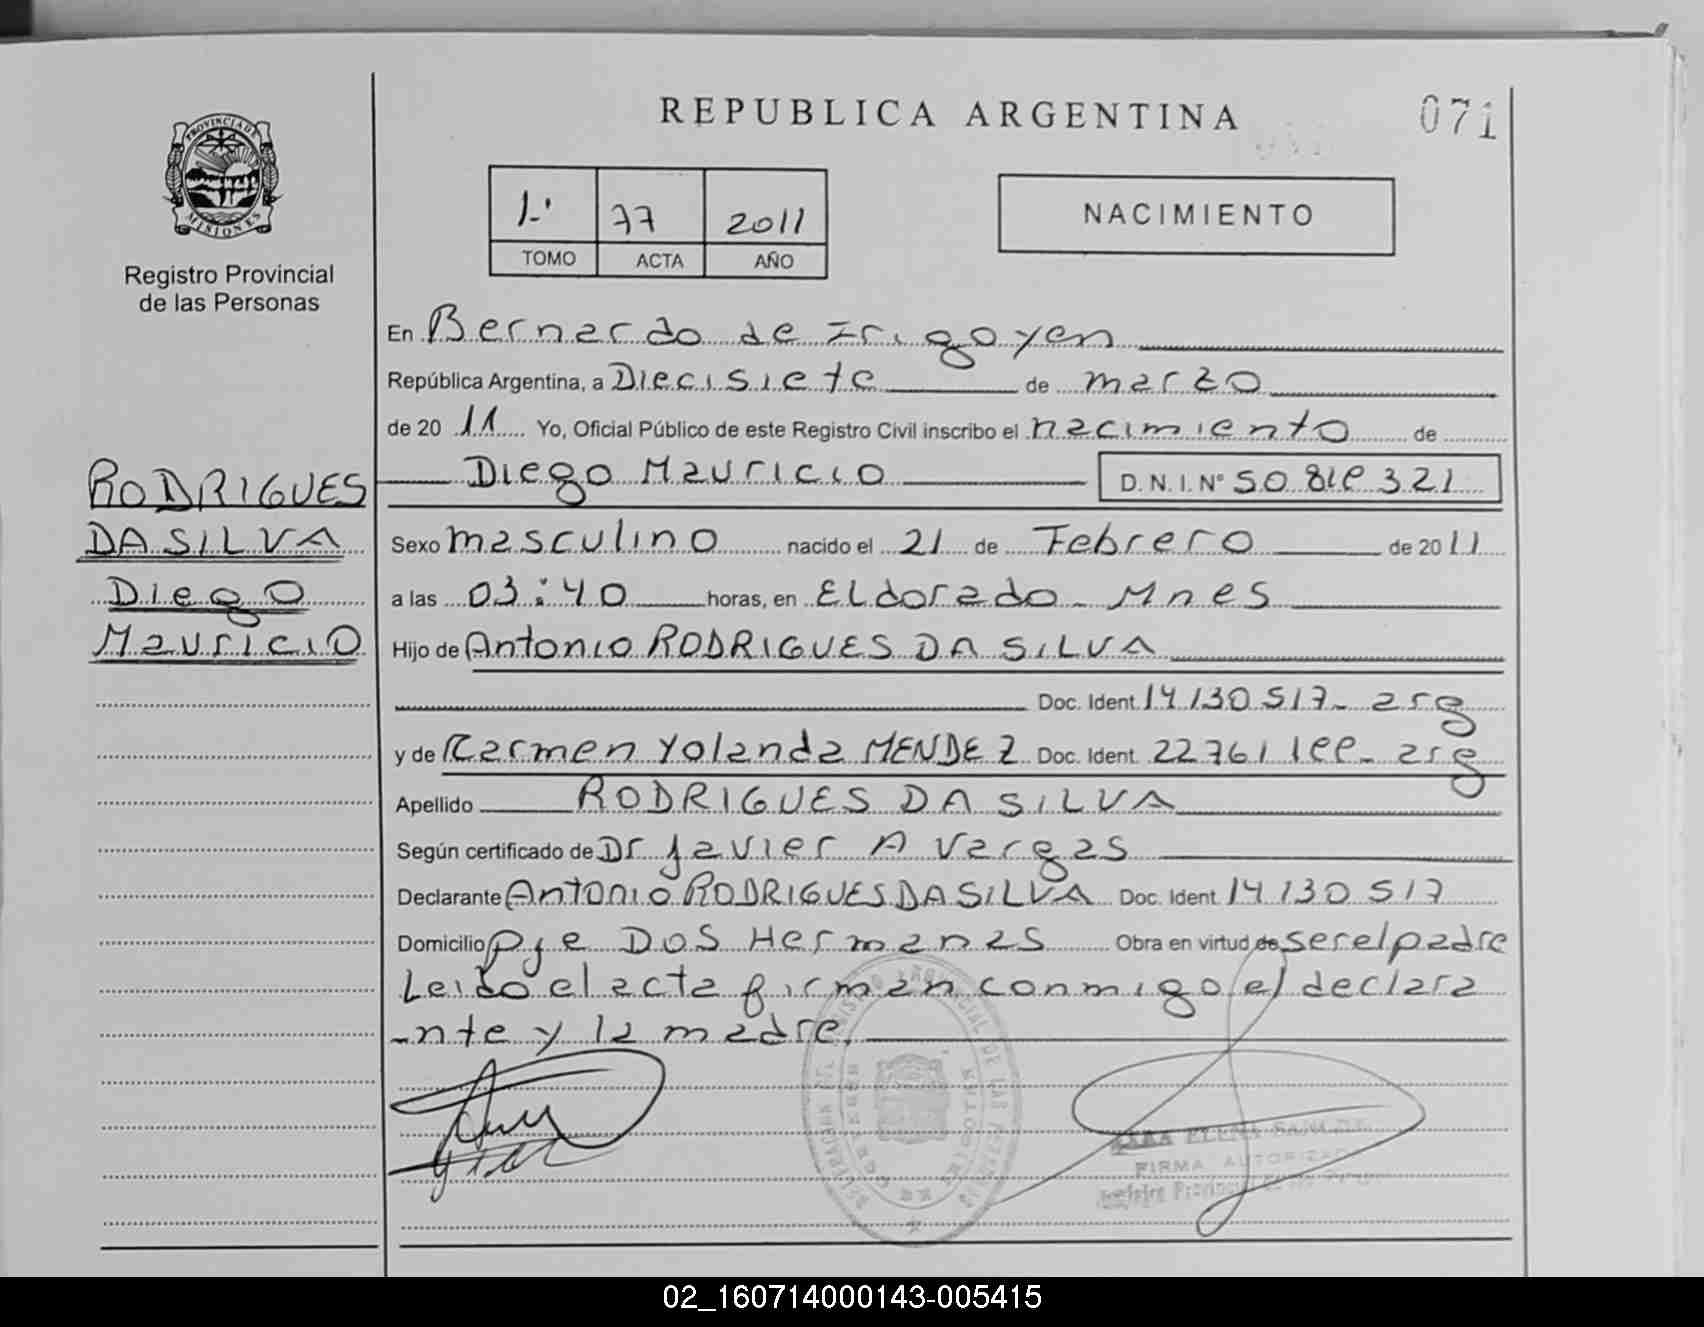 REPUBLICA ARGENTINA
071
PROVINCIA DE
MISIONES
Registro Provincial
de las Personas
1º 77 2011
TOMO ACTA AÑO
NACIMIENTO
En Bernardo de Irigoyen
República Argentina, a Diecisiete de marzo
de 20 11 Yo, Oficial Público de este Registro Civil inscribo el nacimiento de
Diego Mauricio D.N.I. Nº 50.818.321
RODRIGUES
DA SILVA
Diego
Mauricio
Sexo masculino nacido el 21 de Febrero de 2011
a las 03:40 horas, en ELdorado - Mnes
Hijo de Antonio RODRIGUES DA SILVA
Doc. Ident. 14130517- arg
y de Carmen Yolanda MENDEZ Doc. Ident. 22761188- arg
Apellido RODRIGUES DA SILVA
Según certificado de Dr Javier A Vargas
Declarante Antonio RODRIGUES DA SILVA Doc. Ident. 14130517
Domicilio Pje Dos Hermanas Obra en virtud de ser el padre
Leido el acta firman conmigo el declara
-nte y la madre.
FIRMA AUTORIZADA
02_160714000143-005415